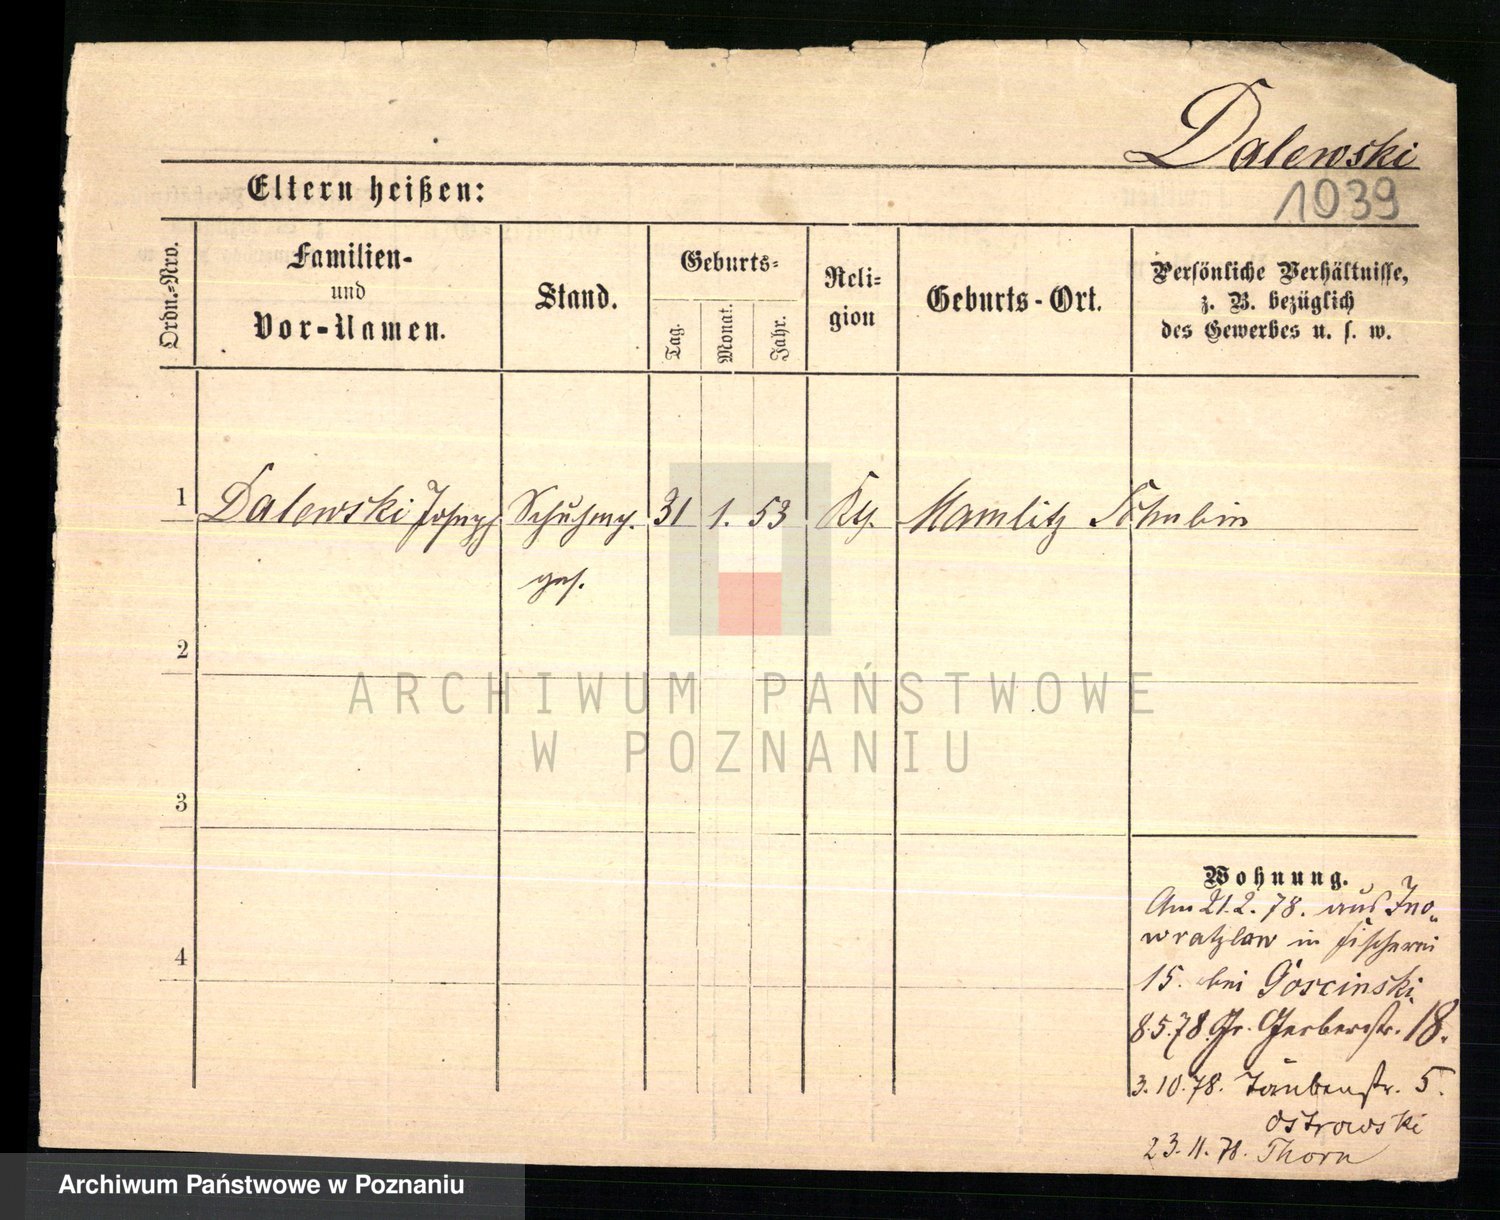 Dalewski
1039
Eltern heißen:
Ordn.-Nro.
Familien-
und
Vor-Namen.
Stand.
Geburts-
Tag.
Monat.
Jahr.
Reli-
gion
Geburts-Ort.
Persönliche Verhältnisse,
z. B. bezüglich
des Gewerbes u. s. w.
1 Dalewski Joseph Schuhm. 31 1. 53 Mamlitz Schubin
ges.
2
ARCHIWUM PAŃSTWOWE
W POZNANIU
3
Wohnung.
Am 21.2.78. aus Ino-
wratzlaw in Fischerei
4
15. bei Goscinski
8.5.78. Gr. Gerberstr. 18.
3.10.78. Taubenstr. 5.
Ostrowski
23.11.78. Thorn
Archiwum Państwowe w Poznaniu